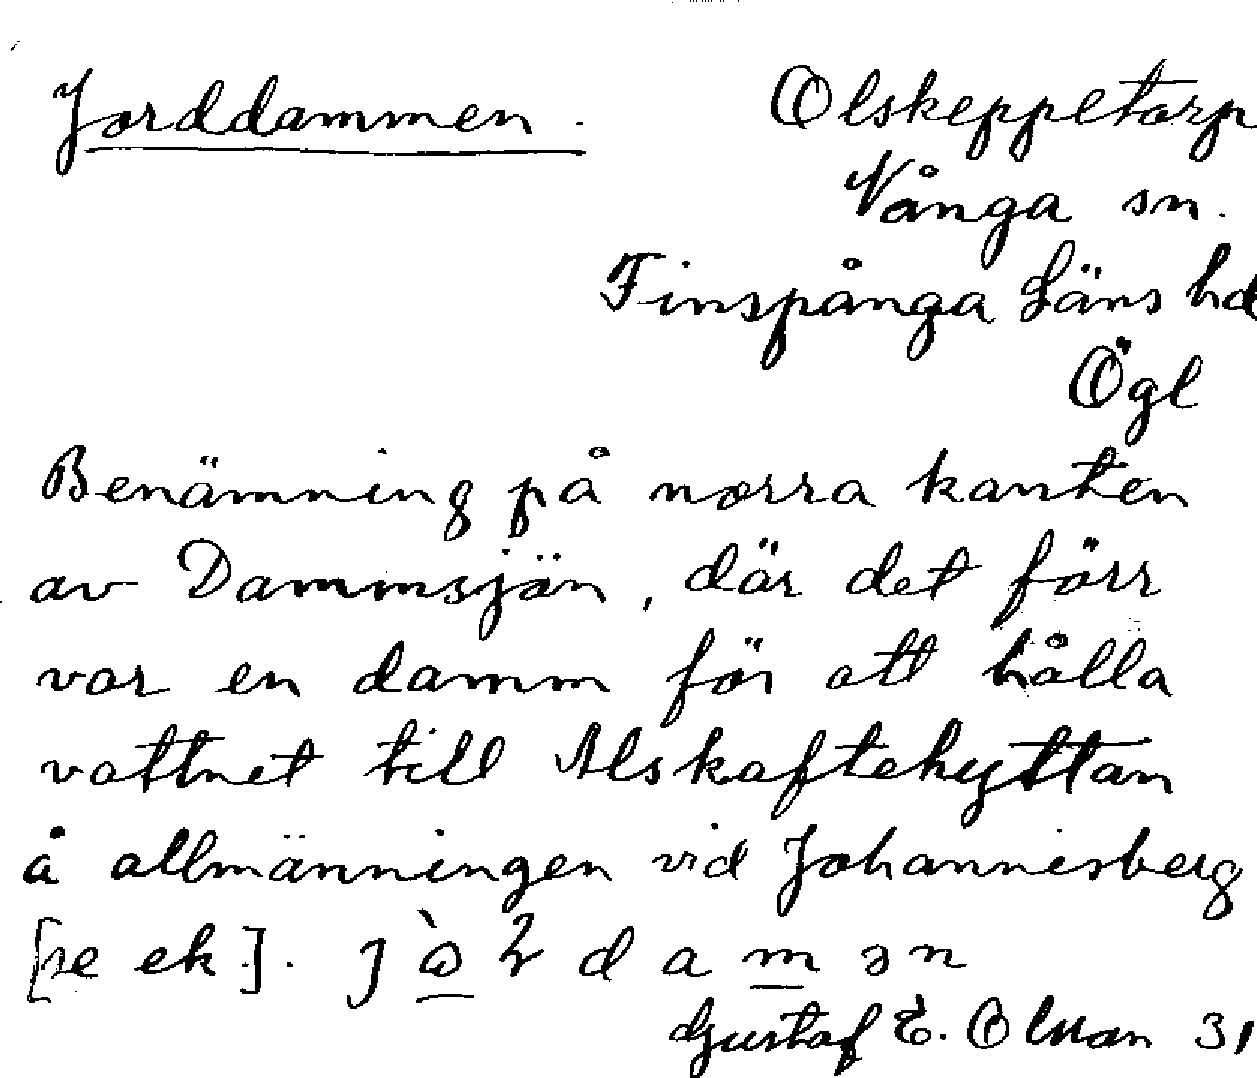 Jorddammen. Olskeppetorp
Vånga sn.
Finspånga Läns hd
Ögl
Benämning på norra kanten
av Dammsjön, där det förr
var en damm för att hålla
vattnet till Alskaftehyttan
å allmänningen vid Johannisberg
[se ek].
Gustaf E. Olson 31